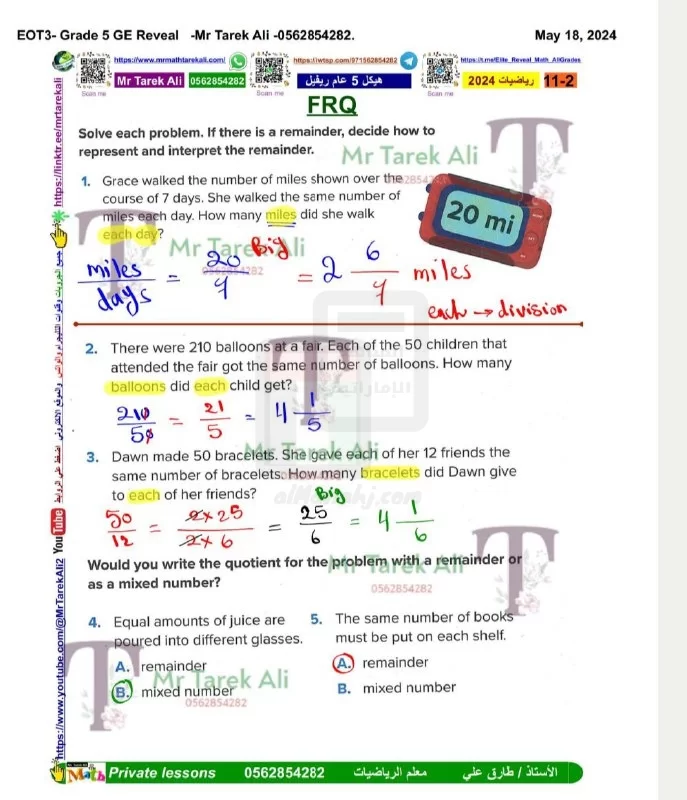 EOT3- Grade 5 GE Reveal -Mr Tarek Ali -0562854282. May 18, 2024
https://www.mrmathtarekali.com/ https://wtsp.com/971562854282 https://t.me/Elite_Reveal_Math_AllGrades
Mr Tarek Ali 0562854282 هيكل 5 عام ريفيل رياضيات 2024 11-2
Scan me Scan me Scan me
FRQ
Solve each problem. If there is a remainder, decide how to
represent and interpret the remainder.
Mr Tarek Ali
1. Grace walked the number of miles shown over the
course of 7 days. She walked the same number of
miles each day. How many miles did she walk
each day?
20 mi
Mr Tarek Ali
0562854282
miles/days = 20/7 Big = 2 6/7 miles
each → division
2. There were 210 balloons at a fair. Each of the 50 children that
attended the fair got the same number of balloons. How many
balloons did each child get?
210/50 = 21/5 = 4 1/5
Mr Tarek Ali
3. Dawn made 50 bracelets. She gave each of her 12 friends the
same number of bracelets. How many bracelets did Dawn give
to each of her friends?
almanahj.com
50/12 = 2x25/2x6 = 25/6 Big = 4 1/6
Would you write the quotient for the problem with a remainder or
as a mixed number?
Mr Tarek Ali
0562854282
4. Equal amounts of juice are
poured into different glasses.
A. remainder
B. mixed number
5. The same number of books
must be put on each shelf.
A. remainder
B. mixed number
Mr Tarek Ali
0562854282
https://www.youtube.com/@MrTarekAli2 YouTube
https://linktr.ee/mrtarekali
Math Private lessons 0562854282 معلم الرياضيات الأستاذ / طارق علي